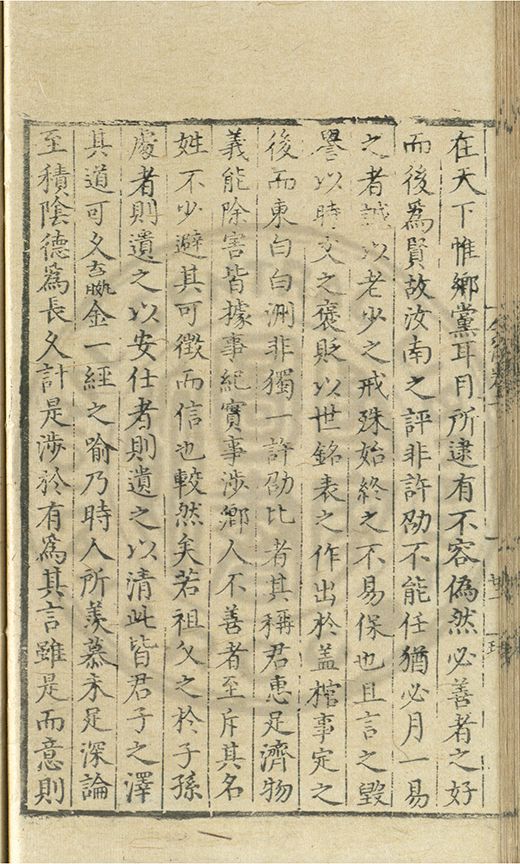 在天下惟鄉黨耳目所逮有不容偽然必善者之好
而後為賢故汝南之評非許劭不能任猶必月一易
之者誠以老少之戒殊始終之不易保也且言之毀
譽以時文之褒貶以世銘表之作出於蓋棺事定之
後而東白白洲非獨一許劭比者其稱君惠足濟物
義能除害皆據事紀實事涉鄉人不善者至斥其名
姓不少避其可徵而信也較然矣若祖父之於子孫
處者則遺之以安仕者則遺之以清此皆君子之澤
其道可久去聲金一經之喻乃時人所羨慕未足深論
至積陰德為長久計是涉於有為其言雖是而意則